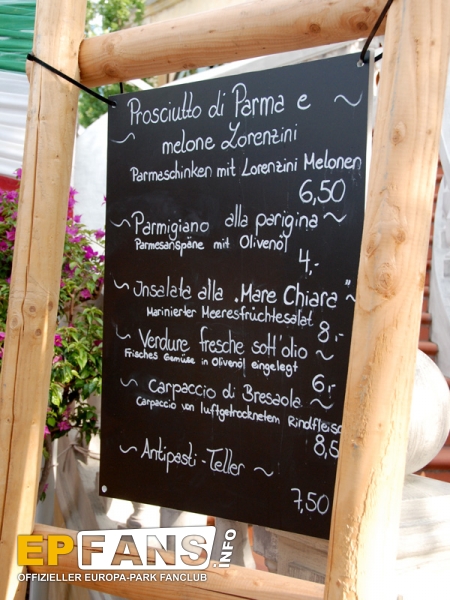 Prosciutto di Parma e
~ melone Lorenzini ~
Parmaschinken mit Lorenzini Melonen
6,50
~ Parmigiano alla parigina ~
Parmesanspäne mit Olivenöl
4,-
~ Insalata alla „Mare Chiara" ~
Marinierter Meeresfrüchtesalat
8,-
~ Verdure fresche sott'olio ~
Frisches Gemüse in Olivenöl eingelegt
6,-
~ Carpaccio di Bresaola
Carpaccio von luftgetrocknetem Rindfleisc
8,5
~ Antipasti-Teller ~
7,50
EPFANS.INFO
OFFIZIELLER EUROPA-PARK FANCLUB